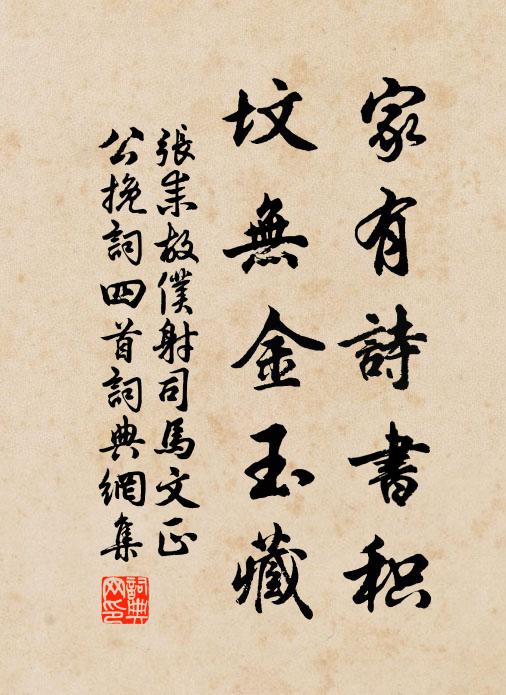 家有詩書积
坟無金玉藏
張耒故僕射司馬文正
公挽詞四首詞典網集
詞典网印